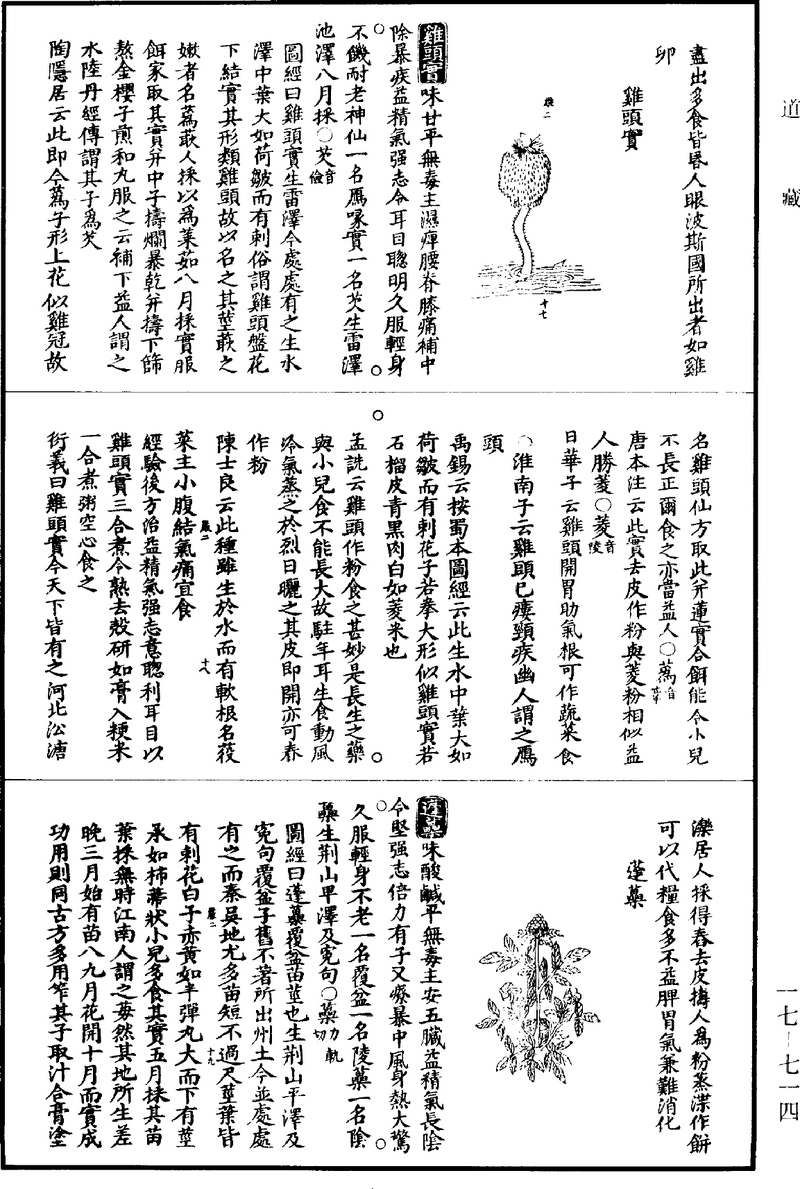 道藏
盡出多食皆昬人眼波斯國所出者如雞
卵
雞頭實
雞二
十七
雞頭實味甘平無毒主濕痺腰脊膝痛補中
除暴疾益精氣强志令耳目聰明久服輕身
不飢耐老神仙一名鴈喙實一名芡生雷澤
池澤八月採○芡音儉
圖經曰雞頭實生雷澤今處處有之生水
澤中葉大如荷皺而有刺俗謂雞頭盤花
下結實其形類雞頭故以名之其莖蔌之
嫩者名蒍蔌人採以爲菜茹八月採實服
餌家取其實并中子擣爛暴乾并擣下篩
熬金櫻子煎和九服之云補下益人謂之
水陸丹經傳謂其子爲芡
陶隱居云此即今蒍子形上花似雞冠故
名雞頭仙方取此并蓮實合餌能令小兒
不長正爾食之亦當益人○蒍音
唐本注云此實去皮作粉與菱粉相似益
人勝菱○菱音陵
日華子云雞頭開胃助氣根可作蔬菜食
○淮南子云雞頭已瘻頸疾幽人謂之鴈
頭
禹錫云按蜀本圖經云此生水中葉大如
荷皺而有刺花子若拳大形似雞頭實若
石榴皮青黑肉白如菱米也
孟詵云雞頭作粉食之甚妙是長生之藥
與小兒食不能長大故駐年耳生食動風
冷氣蒸之於烈日曬之其皮即開亦可舂
作粉
陳士良云此種雖生於水而有軟根名葰
十八
菜主小腹結氣痛宜食
經驗後方治益精氣强志意聰利耳目以
雞頭實三合煮令熟去殼研如膏入粳米
一合煮粥空心食之
衍義曰雞頭實今天下皆有之河北㳂溏
濼居人採得舂去皮擣人爲粉蒸渫作餅
可以代糧食多不益脾胃氣兼難消化
蓬蘽
蓬蘽味酸鹹平無毒主安五臟益精氣長陰
令堅强志倍力有子又療暴中風身熱大驚
久服輕身不老一名覆盆一名陵蘽一名陰
蘽生荆山平澤及寃句○蘽力軌切
圖經曰蓬蘽覆盆苗莖也生荆山平澤及
寃句覆盆子舊不著所出州土今並處處
有之而秦吳地尤多苗短不過尺莖葉皆
十九
有刺花白子赤黃如半彈丸大而下有莖
承如柿蔕狀小兒多食其實五月採其苗
葉採無時江南人謂之莓然其地所生差
晚三月始有苗八九月花開十月而實成
功用則同古方多用笮其子取汁合膏塗
一七－七一四